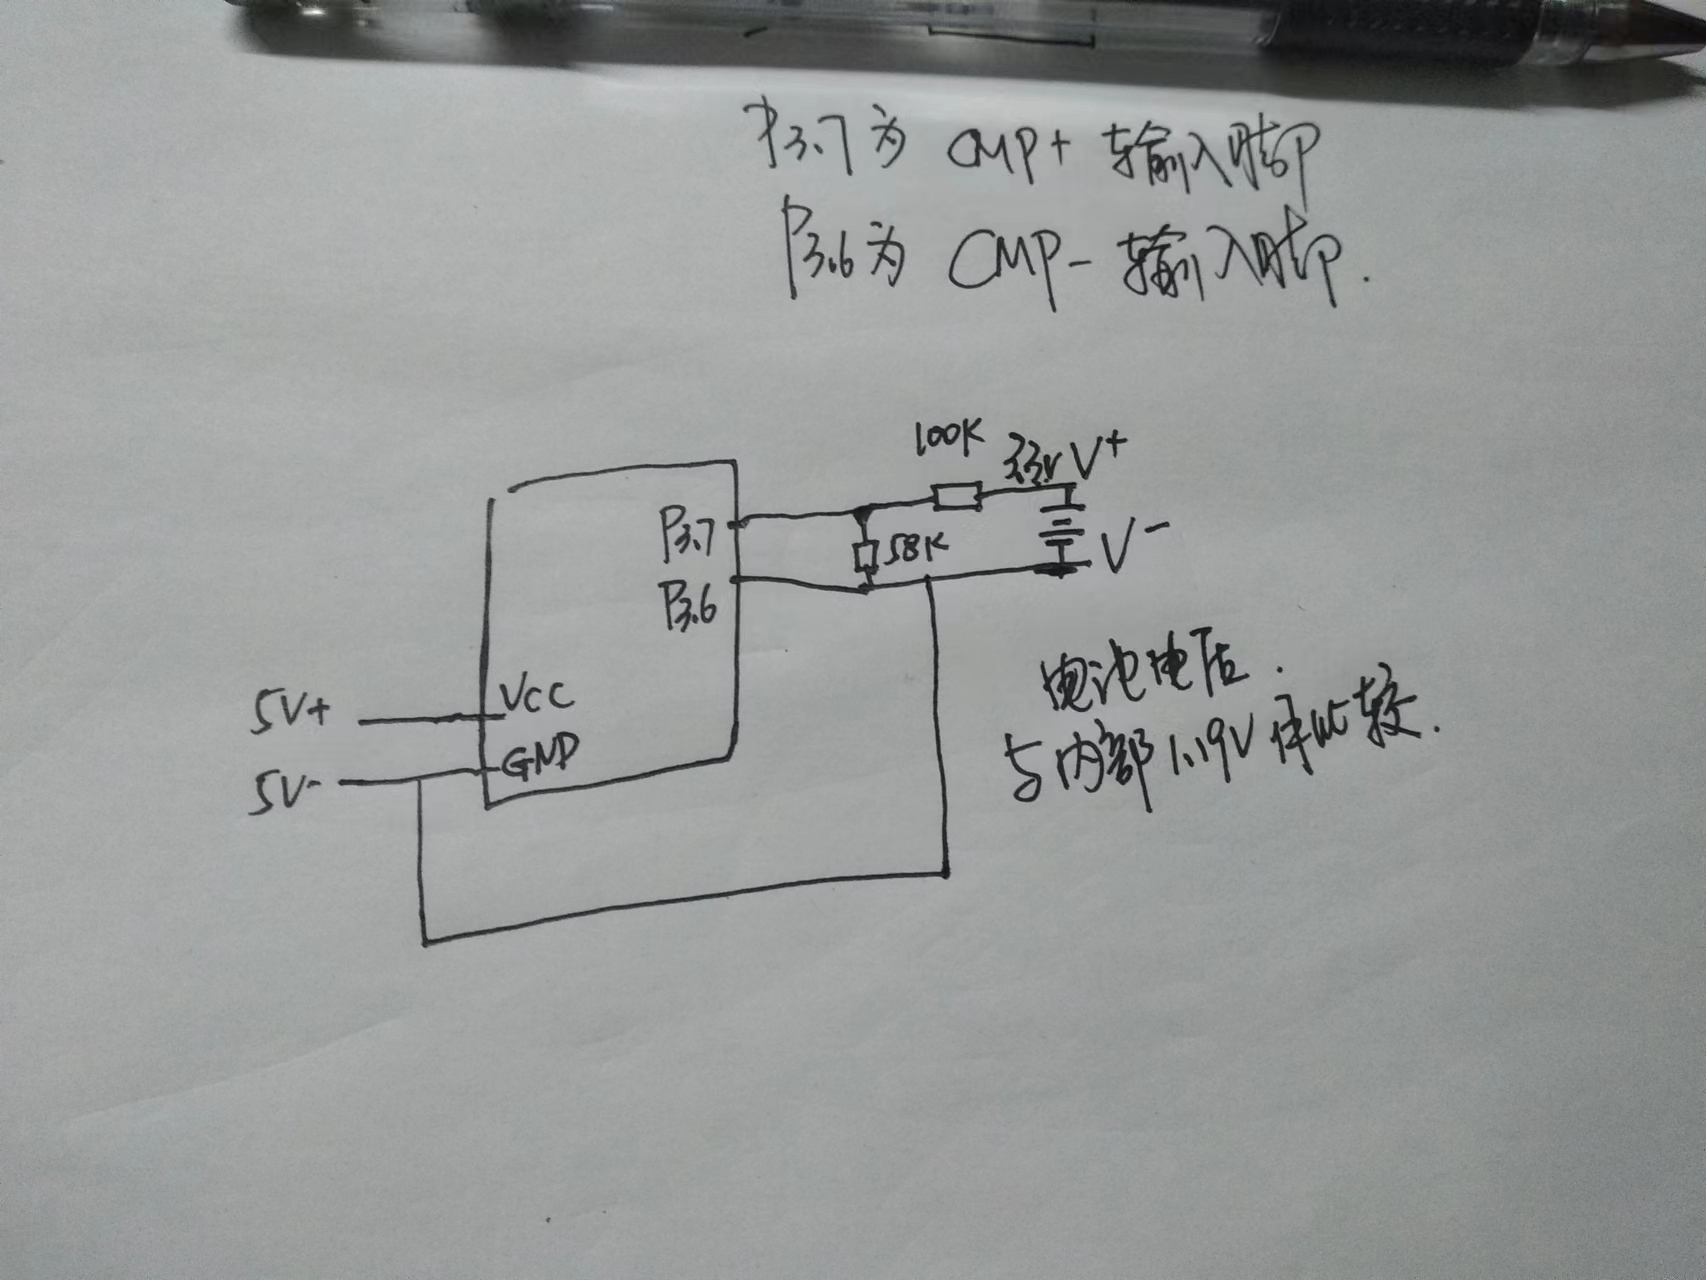 P3.7为 CMP+ 输入脚
P3.6为 CMP- 输入脚.
100K
3.3V V+
P3.7
58K
V-
P3.6
5V+
VCC
5V-
GND
电池电压.
与内部1.19V作比较.